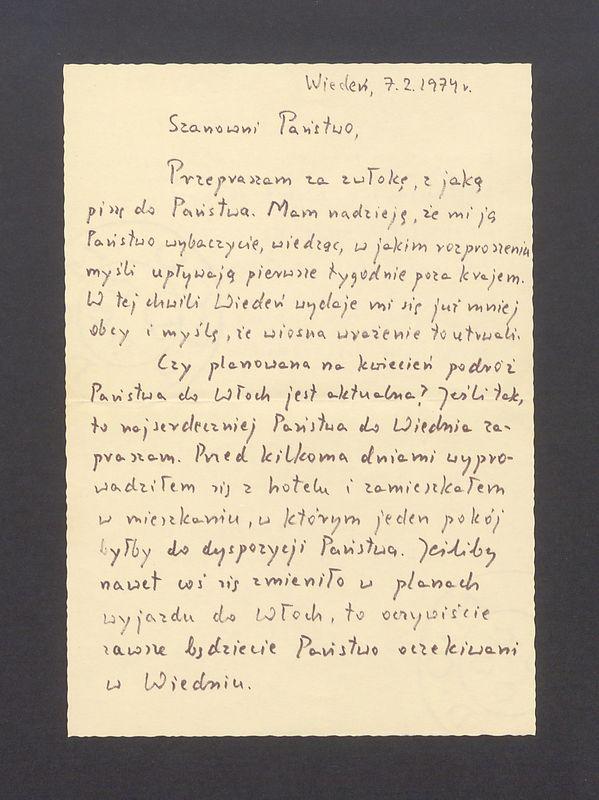 Wiedeń, 7.2.1974 r.
Szanowni Państwo,
Przepraszam za zwłokę, z jaką
piszę do Państwa. Mam nadzieję, że mi ją
Państwo wybaczycie, wiedząc, w jakim rozproszeniu
myśli upływają pierwsze tygodnie poza krajem.
W tej chwili Wiedeń wydaje mi się już mniej
obcy i myślę, że wiosna wrażenie to utrwali.
Czy planowana na kwiecień podróż
Państwa do Włoch jest aktualna? Jeśli tak,
to najserdeczniej Państwa do Wiednia za-
praszam. Przed kilkoma dniami wypro-
wadziłem się z hotelu i zamieszkałem
w mieszkaniu, w którym jeden pokój
byłby do dyspozycji Państwa. Jeśliby
nawet coś się zmieniło w planach
wyjazdu do Włoch, to oczywiście
zawsze będziecie Państwo oczekiwani
w Wiedniu.